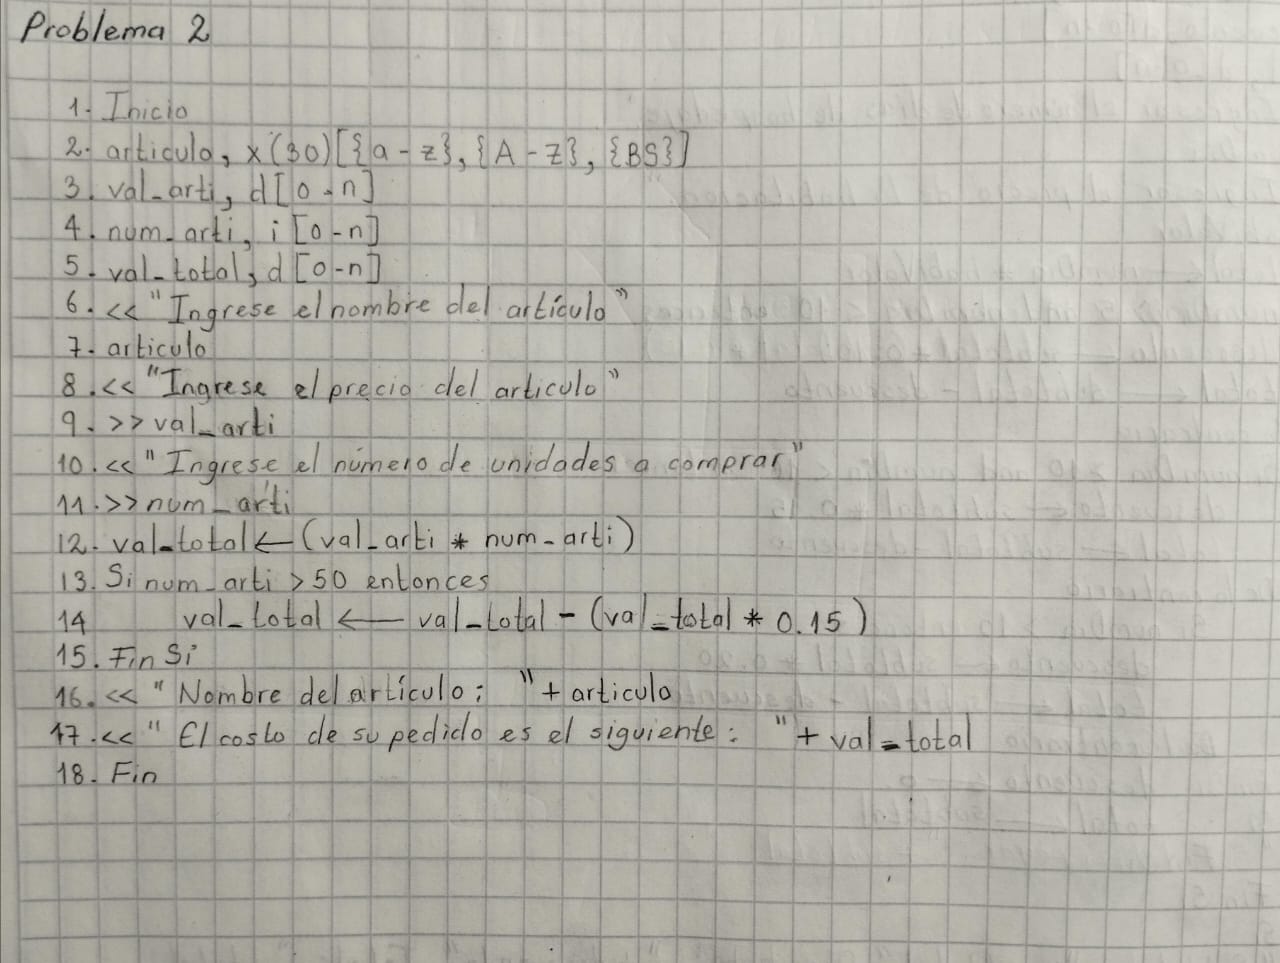 Problema 2
1. Inicio
2. articulo, x(30)[{a-z}, {A-Z}, {BS}]
3. val_arti, d[0-n]
4. num_arti, i[0-n]
5. val_total, d[0-n]
6. << "Ingrese el nombre del artículo"
7. articulo
8. << "Ingrese el precio del articulo"
9. >> val_arti
10. << "Ingrese el número de unidades a comprar"
11. >> num_arti
12. val_total ← (val_arti * num_arti)
13. Si num_arti > 50 entonces
14 val_total ← val_total - (val_total * 0.15)
15. Fin Si
16. << "Nombre del artículo: " + articulo
17. << "El costo de su pedido es el siguiente: " + val_total
18. Fin